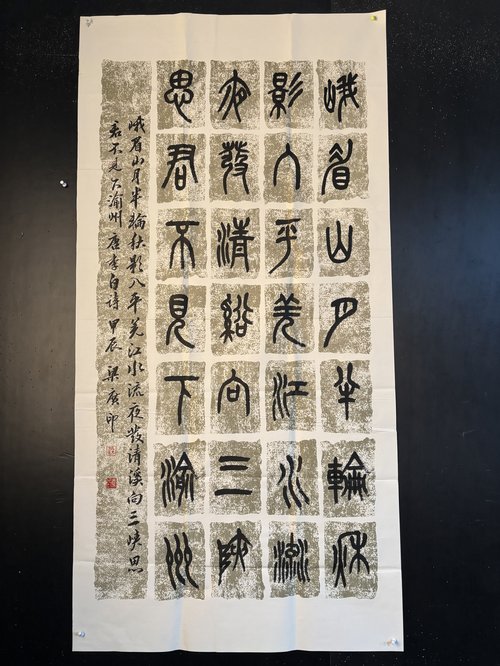 峨眉山月半輪秋
影入平羌江水流
夜發清谿向三峽
思君不見下渝州
峨眉山月半輪秋影入平羌江水流夜發清溪向三峽思
君不見下渝州 唐李白詩 甲辰 梁度印